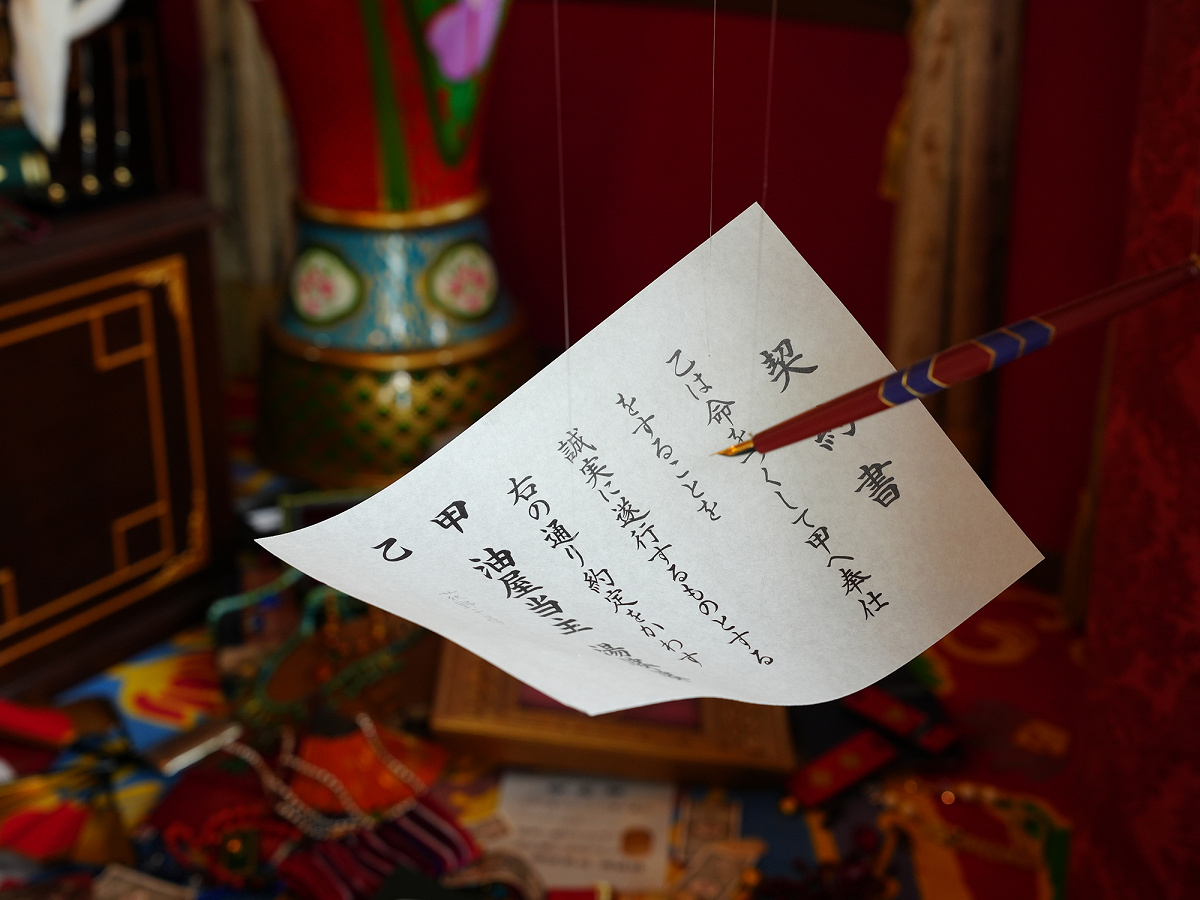 契約書
乙は命をつくして甲へ奉仕
をすることを
誠実に遂行するものとする
右の通り約定をかわす
甲 油屋当主 湯
乙